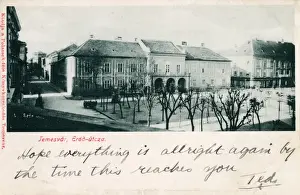 Temesvár, Erdő-útcza.
Hope everything is allright again by
the time this reaches you
Ted.